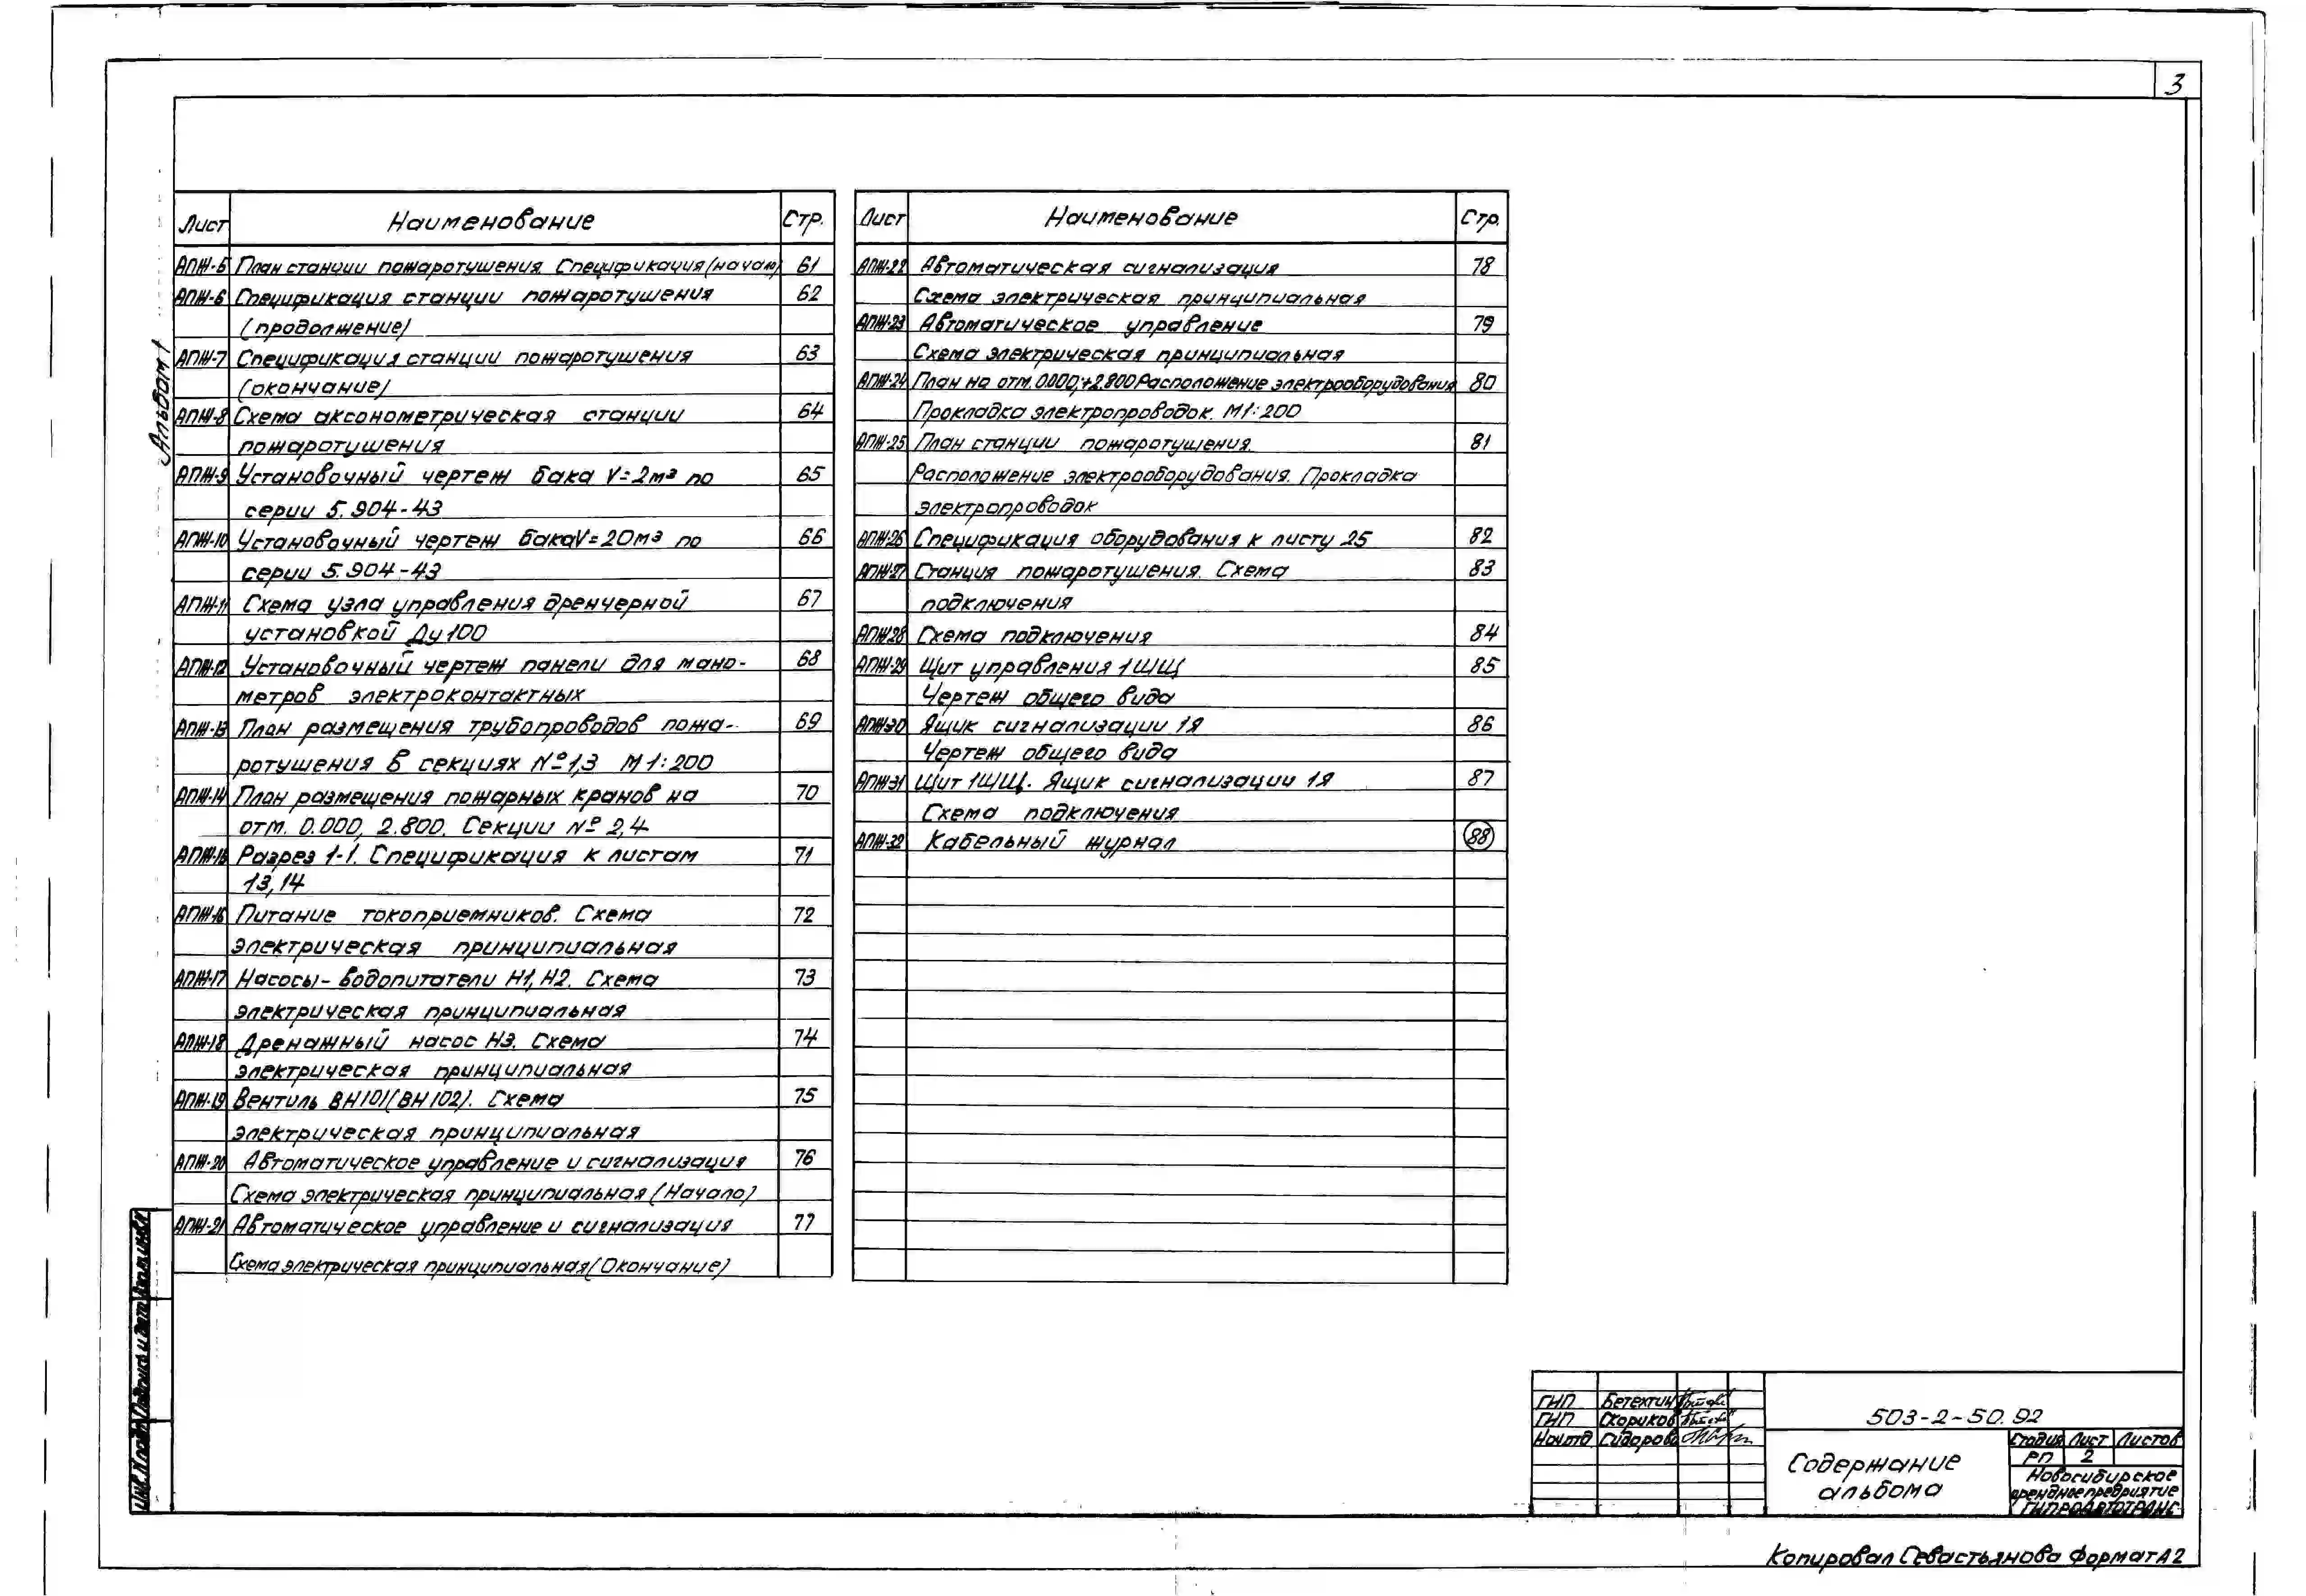 3
Альбом 1
Лист Наименование Стр.
АПЖ-5 План станции пожаротушения. Спецификация (начало) 61
АПЖ-6 Спецификация станции пожаротушения 62
(продолжение)
АПЖ-7 Спецификация станции пожаротушения 63
(окончание)
АПЖ-8 Схема аксонометрическая станции 64
пожаротушения
АПЖ-9 Установочный чертеж бака V=2м³ по 65
серии 5.904-43
АПЖ-10 Установочный чертеж бака V=20м³ по 66
серии 5.904-43
АПЖ-11 Схема узла управления дренчерной 67
установкой Ду100
АПЖ-12 Установочный чертеж панели для мано- 68
метров электроконтактных
АПЖ-13 План размещения трубопроводов пожа- 69
ротушения в секциях №1,3 М1:200
АПЖ-14 План размещения пожарных кранов на 70
отм. 0.000, 2.800. Секции № 2,4
АПЖ-15 Разрез 1-1. Спецификация к листам 71
13,14
АПЖ-16 Питание токоприемников. Схема 72
электрическая принципиальная
АПЖ-17 Насосы-водопитатели Н1, Н2. Схема 73
электрическая принципиальная
АПЖ-18 Дренажный насос Н3. Схема 74
электрическая принципиальная
АПЖ-19 Вентиль ВН101(ВН102). Схема 75
электрическая принципиальная
АПЖ-20 Автоматическое управление и сигнализация 76
Схема электрическая принципиальная (Начало)
АПЖ-21 Автоматическое управление и сигнализация 77
Схема электрическая принципиальная (Окончание)
Лист Наименование Стр.
АПЖ-22 Автоматическая сигнализация 78
Схема электрическая принципиальная
АПЖ-23 Автоматическое управление 79
Схема электрическая принципиальная
АПЖ-24 План на отм. 0.000,+2.800 Расположение электрооборудования 80
Прокладка электропроводок. М1:200
АПЖ-25 План станции пожаротушения. 81
Расположение электрооборудования. Прокладка
электропроводок
АПЖ-26 Спецификация оборудования к листу 25 82
АПЖ-27 Станция пожаротушения. Схема 83
подключения
АПЖ-28 Схема подключения 84
АПЖ-29 Щит управления 1ШЩ 85
Чертеж общего вида
АПЖ-30 Ящик сигнализации 1Я 86
Чертеж общего вида
АПЖ-31 Щит 1ШЩ. Ящик сигнализации 1Я 87
Схема подключения
АПЖ-32 Кабельный журнал 88
Инв.№ подл. Подпись и дата Взам.инв.№
ГИП Бетехтин
ГИП Скориков
Нач.отд Сидорова
503-2-50.92
Содержание
альбома
Стадия Лист Листов
РП 2
Новосибирское
арендное предприятие
ГИПРОАВТОТРАНС
Копировал Севастьянова Формат А2